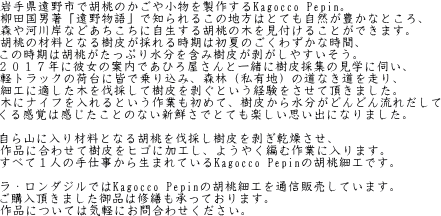 岩手県遠野市で胡桃のかごや小物を製作するKagocco Pepin。
柳田国男著『遠野物語』で知られるこの地方はとても自然が豊かなところ、
森や河川岸などあちこちに自生する胡桃の木を見付けることができます。
胡桃の材料となる樹皮が採れる時期は初夏のごくわずかな時間、
この時期は胡桃がたっぷり水分を含み樹皮が剥がしやすいそう。
２０１７年に彼女の案内であひろ屋さんと一緒に樹皮採集の見学に伺い、
軽トラックの荷台に皆で乗り込み、森林（私有地）の道なき道を走り、
細工に適した木を伐採して樹皮を剥ぐという経験をさせて頂きました。
木にナイフを入れるという作業も初めて、樹皮から水分がどんどん流れだして
くる感覚は感じたことのない新鮮さでとても楽しい思い出になりました。
自ら山に入り材料となる胡桃を伐採し樹皮を剥ぎ乾燥させ、
作品に合わせて樹皮をヒゴに加工し、ようやく編む作業に入ります。
すべて１人の手仕事から生まれているKagocco Pepinの胡桃細工です。
ラ・ロンダジルではKagocco Pepinの胡桃細工を通信販売しています。
ご購入頂きました御品は修繕も承っております。
作品については気軽にお問合わせください。